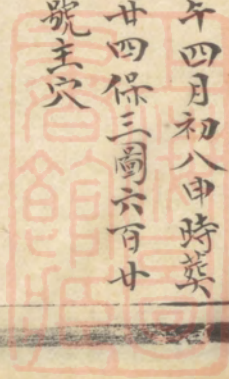 午四月初八申時葬
廿四保三圖六百廿
號主穴